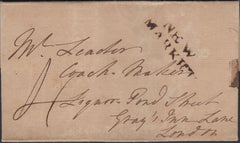 NEW
MARKET
Mr. Leader
Coach Maker
Liquor Pond Street
Gray's Inn Lane
London